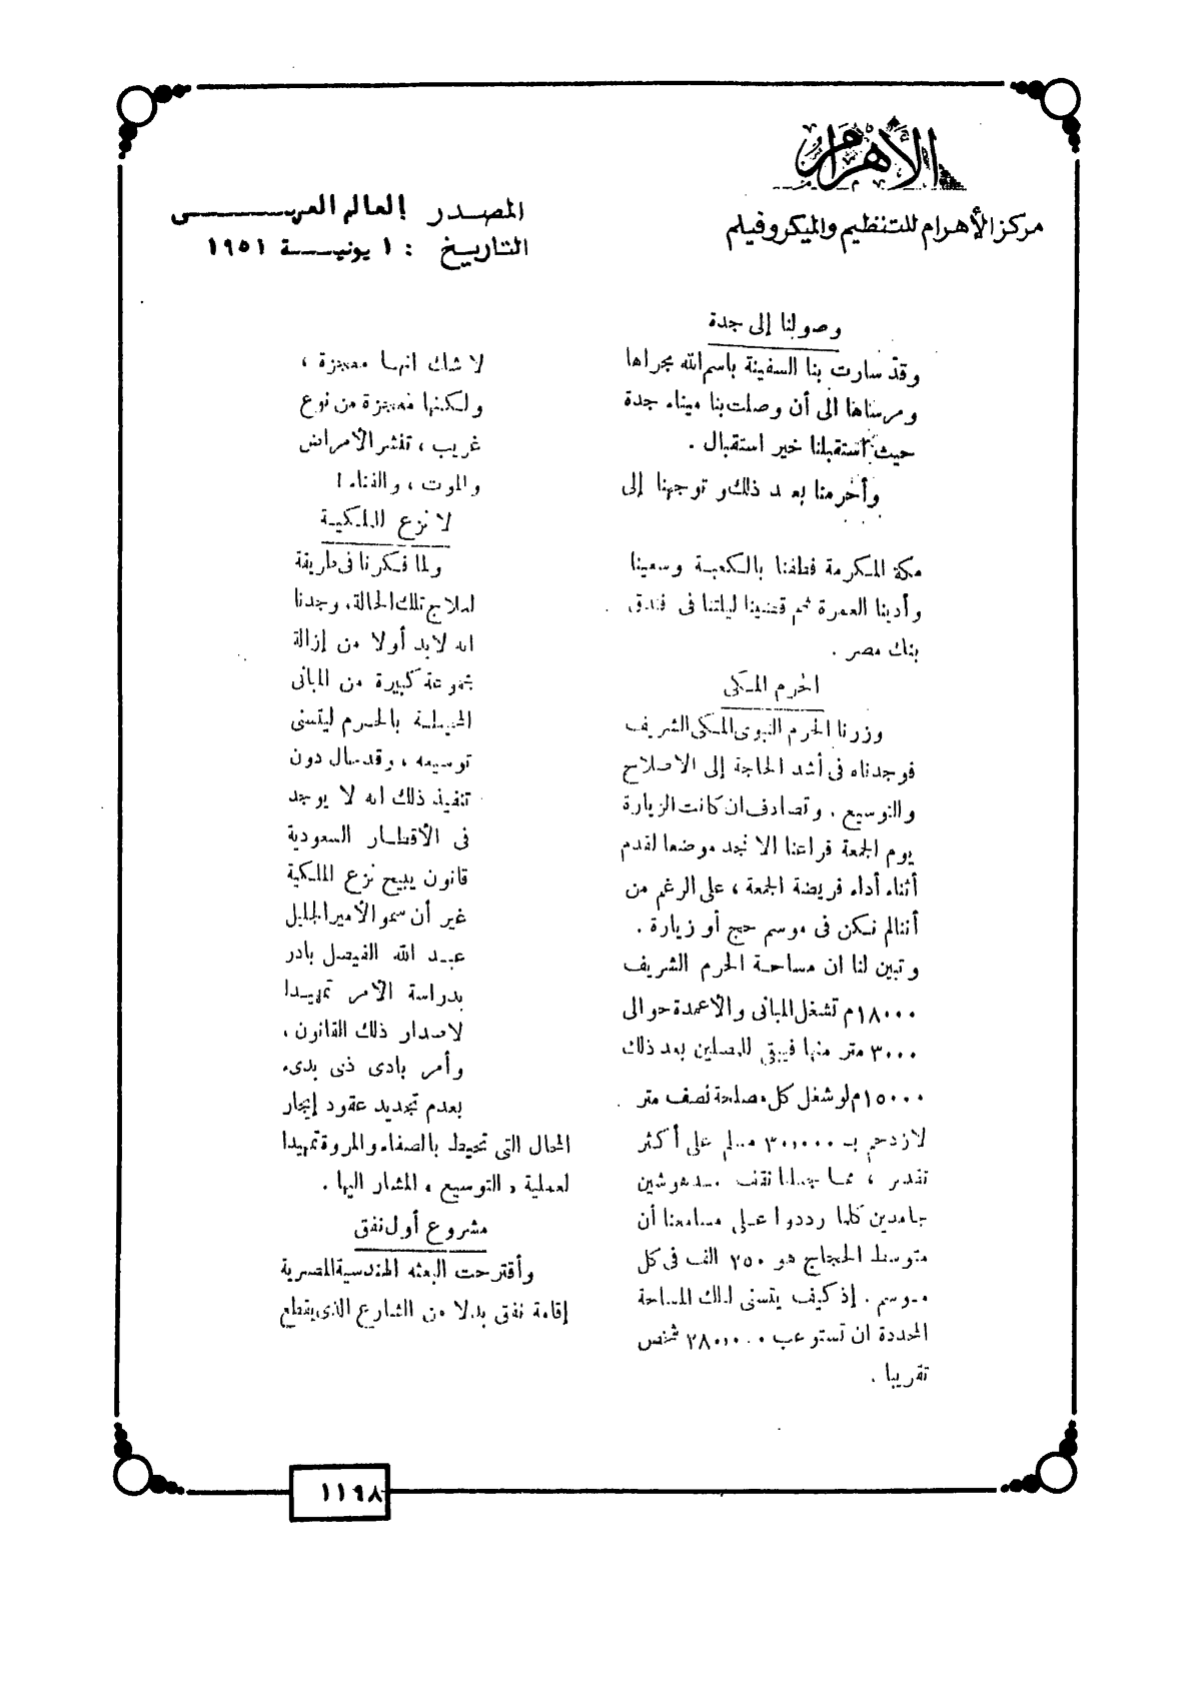 الأهرام
مركز الأهرام للتنظيم والميكروفيلم
المصدر العالم العربى
التاريخ : ١ يونيـة ١٩٥١
وصولنا إلى جدة
وقد سارت بنا السفينة باسم الله مجراها
ومرساها الى أن وصلت بنا ميناء جدة
حيث استقبلنا خير استقبال .
وأحرمنا بعد ذلك وتوجهنا إلى
مكة المكرمة فطفنا بالكعبة وسعينا
وأدينا العمرة ثم قضينا ليلتنا فى فندق
بنك مصر .
الحرم المكى
وزرنا الحرم النبوى المكى الشريف
فوجدناه فى أشد الحاجة إلى الاصلاح
والتوسيع . وتصادف ان كانت الزيارة
يوم الجمعة فراعنا الا نجد موضعا لقدم
أثناء أداء فريضة الجمعة ، على الرغم من
أننا لم نكن فى موسم حج أو زيارة .
وتبين لنا ان مساحة الحرم الشريف
١٨٠٠٠م تشغل المبانى والأعمدة حوالى
٣٠٠٠ متر منها فيبقى للمصلين بعد ذلك
١٥٠٠٠م لو شغل كل مصل مساحة نصف متر
لازدحم بـ ٣٠,٠٠٠ مسلم على أكثر
تقدير ، مما جعلنا نقف مدهوشين
جامدين كلما رددوا على مسامعنا أن
متوسط الحجاج هو ٢٥٠ الف فى كل
موسم . إذ كيف يتسنى لتلك المساحة
المحددة ان تستوعب ٢٨٠,٠٠٠ شخص
تقريبا .
لا شك انها معجزة ،
ولكنها معجزة من نوع
غريب ، تنشر الأمراض
والموت ، والفناء !
لا نزع للملكية
ولما فكرنا فى طريقة
لعلاج تلك الحالة ، وجدنا
انه لابد أولا من إزالة
مجموعة كبيرة من المبانى
المحيطة بالحرم ليتسنى
توسيعه ، وقد حال دون
تنفيذ ذلك انه لا يوجد
فى الأقطار السعودية
قانون يبيح نزع الملكية
غير أن سمو الأمير الجليل
عبد الله الفيصل بادر
بدراسة الأمر تمهيدا
لاصدار ذلك القانون ،
وأمر بادى ذى بدىء
بعدم تجديد عقود إيجار
المحال التى تحيط بالصفاء والمروة تمهيدا
لعملية « التوسيع » المشار اليها .
مشروع أول نفق
وأقترحت البعثه الهندسية المصرية
إقامة نفق بدلا من الشارع الذى يقطع
١١٩٨